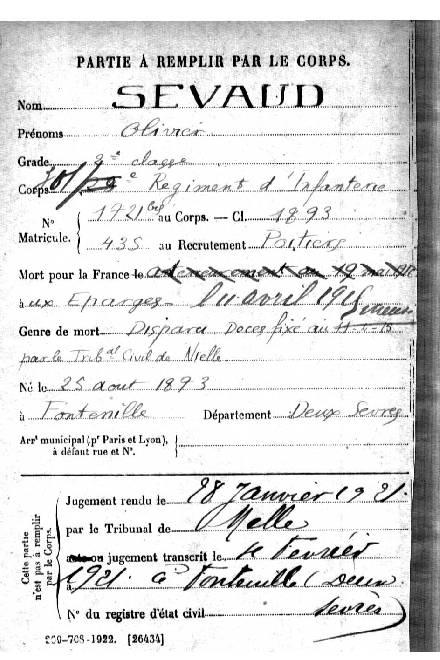 PARTIE À REMPLIR PAR LE CORPS.
Nom SEVAUD
Prénoms Olivier
Grade 2e classe
Corps 301/ e Regiment d'Infanterie
N° Matricule. { 1721 au Corps. — Cl. 1893
435 au Recrutement Poitiers
Mort pour la France le
à aux Eparges le 11 avril 1915 Meuse
Genre de mort Disparu Deces fixé au 11-4-15
par le Tribal Civil de Melle
Né le 25 aout 1893
à Fontenille Département Deux Sevres
Arrt municipal (pr Paris et Lyon), à défaut rue et N°.
Cette partie n'est pas à remplir par le Corps.
Jugement rendu le 28 Janvier 1921.
par le Tribunal de Melle
acte ou jugement transcrit le 4 Fevrier
1921. à Fonteuille (Deux
Sevres)
N° du registre d'état civil
269-708-1922. [26434]